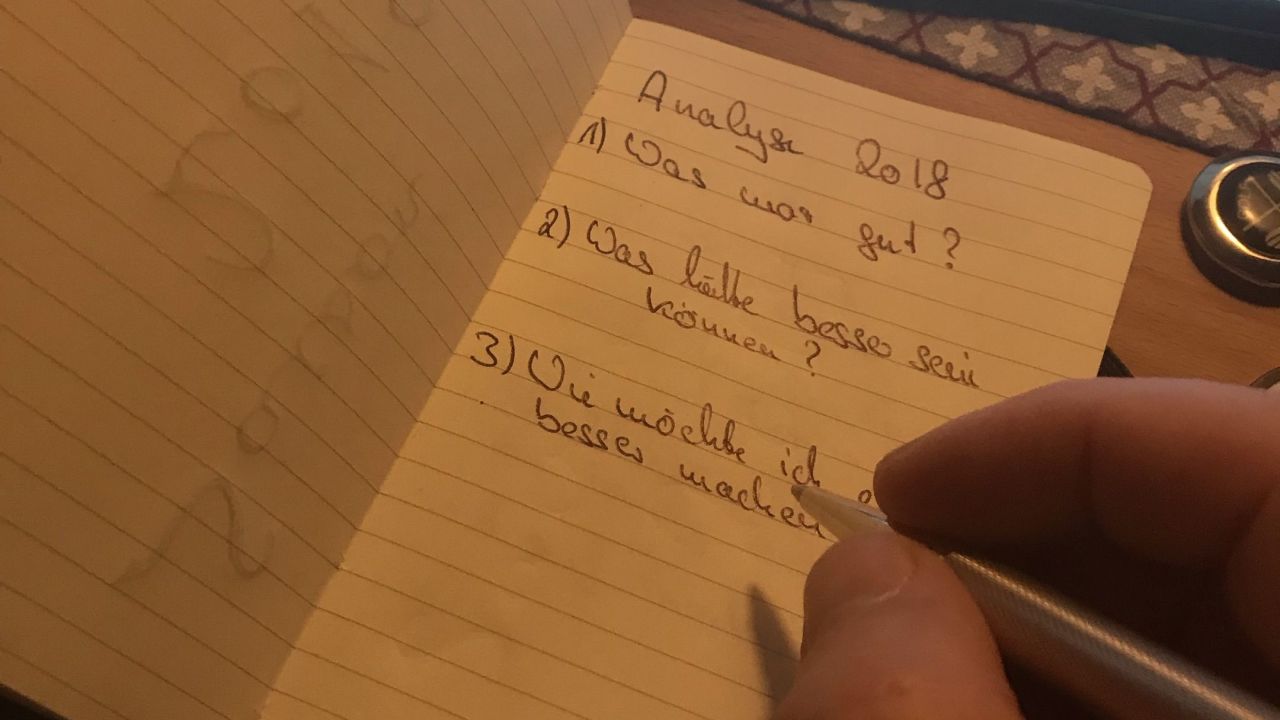 Analyse 2018
1) Was war gut?
2) Was hätte besser sein
können?
3) Wie möchte ich
besser machen